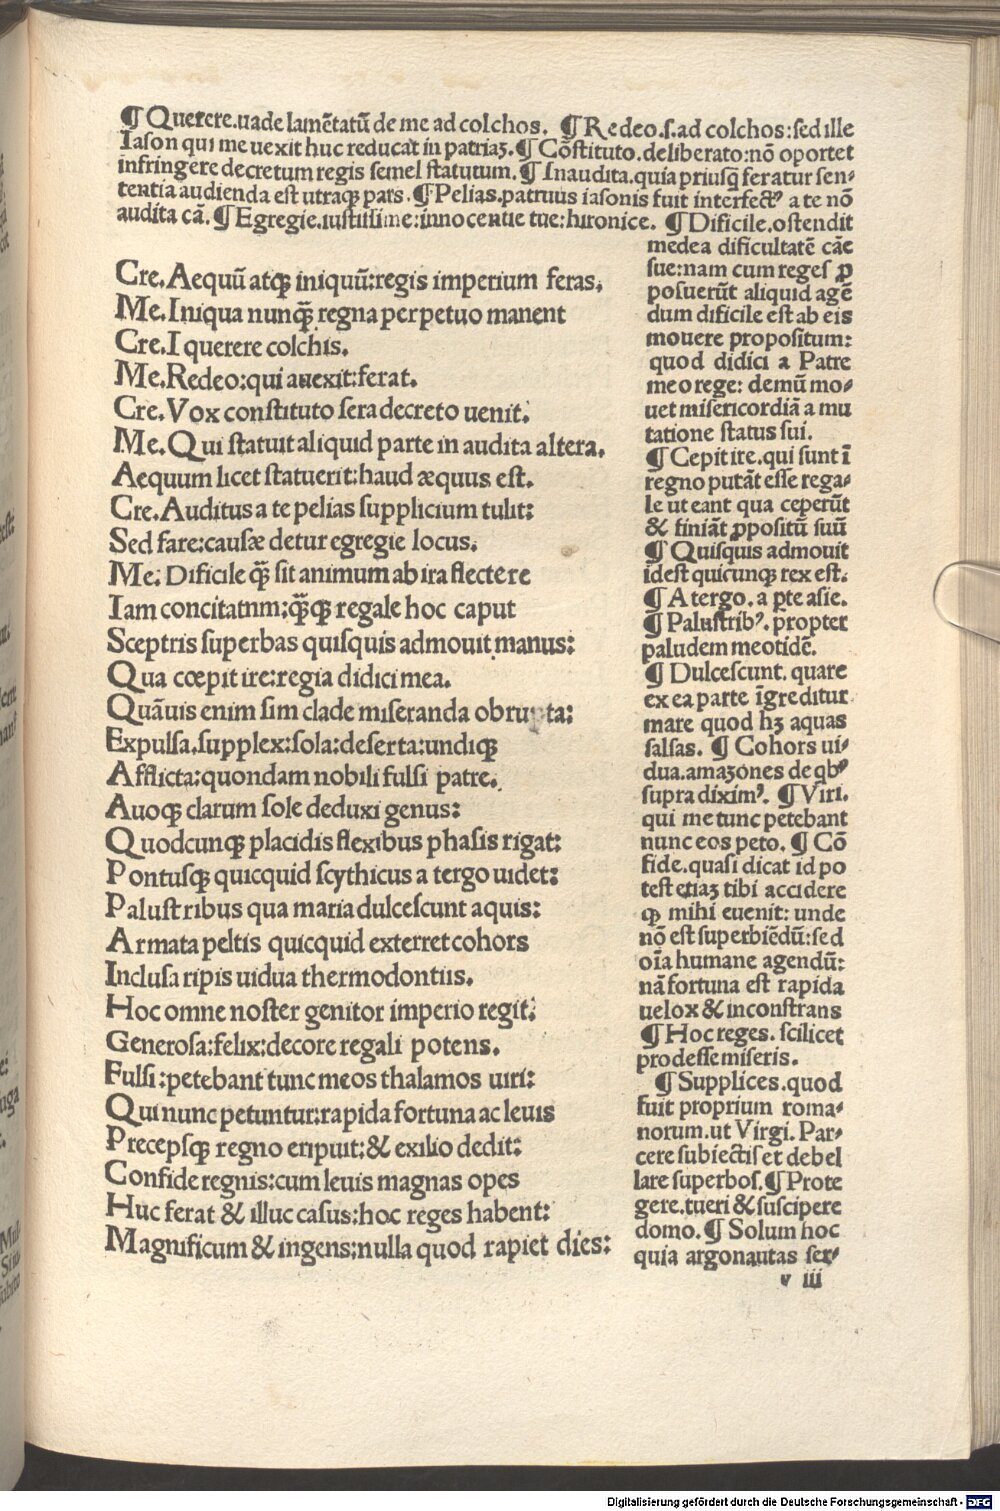 ¶ Querere.uade lamētatū de me ad colchos. ¶ Redeo.ſ.ad colchos:ſed ille
Iaſon qui me uexit huc reducat in patriaʒ. ¶ Cōſtituto.deliberato:nō oportet
infringere decretum regis ſemel ſtatutum. ¶ Inaudita.quia priuſq̄ feratur ſen⸗
tentia audienda eſt utraqꝫ pars. ¶ Pelias.patruus iaſonis fuit interfectꝰ a te nō
audita cā. ¶ Egregie.iuſtiſſime:innocentie tue:hironice. ¶ Dificile.oſtendit
medea dificultatē cāe
ſue:nam cum reges ꝓ
poſuerūt aliquid agē
dum dificile eſt ab eis
mouere propoſitum:
quod didici a Patre
meo rege: demū mo⸗
uet miſericordiā a mu
tatione ſtatus ſui.
¶ Cepit ire.qui ſunt ī
regno putāt eſſe rega⸗
le ut eant qua ceperūt
& finiāt ꝓpoſitū ſuū
¶ Quiſquis admouit
ideſt quicunqꝫ rex eſt.
¶ A tergo. a ꝑte aſie.
¶ Paluſtribꝰ. propter
paludem meotidē.
¶ Dulceſcunt. quare
ex ea parte īgreditur
mare quod hʒ aquas
ſalſas. ¶ Cohors ui⸗
dua.amaʒones de qbꝰ
ſupra diximꝰ. ¶ Viri.
qui me tunc petebant
nunc eos peto. ¶ Cō
fide.quaſi dicat id po
teſt etiaʒ tibi accidere
qꝫ mihi euenit: unde
nō eſt ſuperbiēdū:ſed
oīa humane agendū:
nā fortuna eſt rapida
uelox & inconſtrans
¶ Hoc reges. ſcilicet
prodeſſe miſeris.
¶ Supplices.quod
fuit proprium roma⸗
norum.ut Virgi. Par⸗
cere ſubiectiſ et debel
lare ſuperboſ. ¶ Prote
gere.tueri & ſuſcipere
domo. ¶ Solum hoc
quia argonautas ſer⸗
v iii
Cre.Aequū atqꝫ iniquū:regis imperium feras.
Me.Iniqua nunqꝫ̄ regna perpetuo manent
Cre.I querere colchis.
Me.Redeo:qui auexit:ferat.
Cre.Vox conſtituto ſera decreto uenit.
Me.Qui ſtatuit aliquid parte in audita altera.
Aequum licet ſtatuerit:haud æquus eſt.
Cre.Auditus a te pelias ſupplicium tulit:
Sed fare:cauſæ detur egregie locus.
Me.Dificile qꝫ̄ ſit animum ab ira flectere
Iam concitatnm:qꝫ̄qꝫ regale hoc caput
Sceptris ſuperbas quiſquis admouit manus:
Qua cœpit ire:regia didici mea.
Quāuis enim ſim clade miſeranda obrupta:
Expulſa.ſupplex:ſola:deſerta:undiqꝫ
Afflicta:quondam nobili fulſi patre.
Auoqꝫ clarum ſole deduxi genus:
Quodcunqꝫ placidis flexibus phaſis rigat:
Pontuſqꝫ quicquid ſcythicus a tergo uidet:
Paluſtribus qua maria dulceſcunt aquis:
Armata peltis quicquid exterret cohors
Incluſa ripis uidua thermodontiis.
Hoc omne noſter genitor imperio regit.
Generoſa:felix:decore regali potens.
Fulſi:petebant tunc meos thalamos uiri:
Qui nunc petuntur:rapida fortuna ac leuis
Precepſqꝫ regno eripuit:& exilio dedit:
Confide regnis:cum leuis magnas opes
Huc ferat & illuc caſus:hoc reges habent:
Magnificum & ingens:nulla quod rapiet dies:
Digitalisierung gefördert durch die Deutsche Forschungsgemeinschaft - DFG